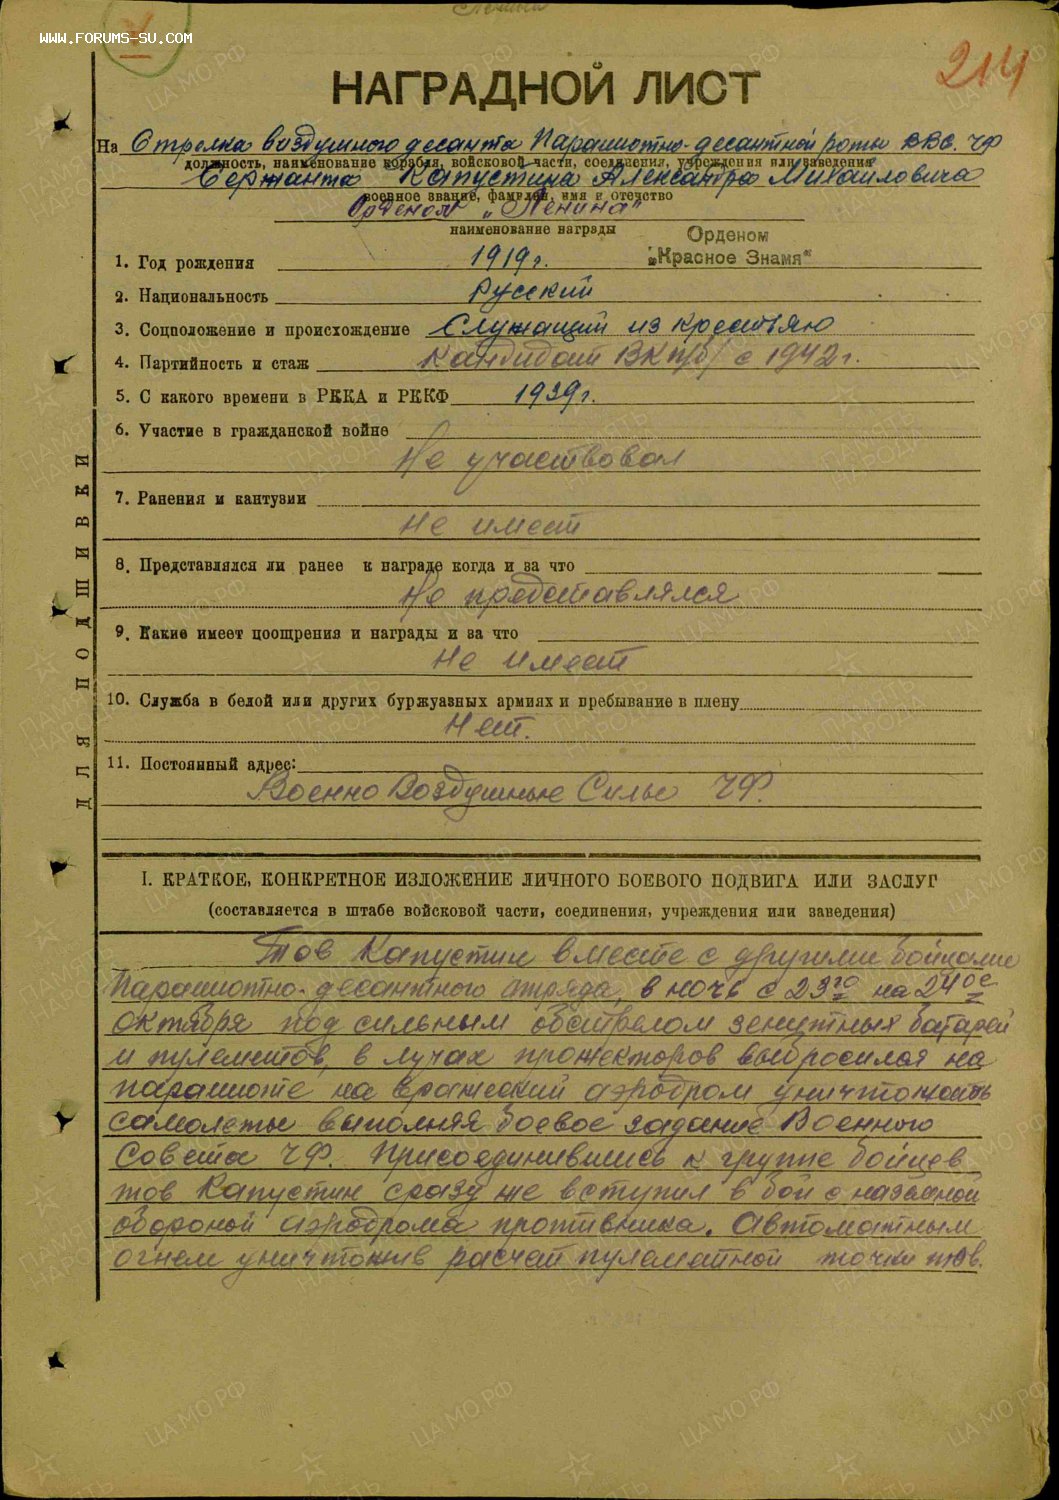 WWW.FORUMS-SU.COM
214
НАГРАДНОЙ ЛИСТ
На Стрелка воздушного десанта Парашютно-десантной роты ВВС. ЧФ
должность, наименование корабля, войсковой части, соединения, учреждения или заведения
Сержанта Капустина Александра Михайловича
военное звание, фамилия, имя и отчество
Орденом „Ленина"
наименование награды
Орденом
„Красное Знамя"
1. Год рождения 1919г.
2. Национальность Русский
3. Соцположение и происхождение Служащий из крестьян
4. Партийность и стаж Кандидат ВКП/б/ с 1942г.
5. С какого времени в РККА и РККФ 1939г.
6. Участие в гражданской войне
Не участвовал
7. Ранения и кантузии
Не имеет
8. Представлялся ли ранее к награде когда и за что
Не представлялся
9. Какие имеет поощрения и награды и за что
Не имеет
10. Служба в белой или других буржуазных армиях и пребывание в плену
Нет.
11. Постоянный адрес:
Военно Воздушные Силы ЧФ.
ДЛЯ ПОДШИВКИ
I. КРАТКОЕ, КОНКРЕТНОЕ ИЗЛОЖЕНИЕ ЛИЧНОГО БОЕВОГО ПОДВИГА ИЛИ ЗАСЛУГ
(составляется в штабе войсковой части, соединения, учреждения или заведения)
Тов Капустин вместе с другими бойцами
Парашютно-десантного отряда, в ночь с 23го на 24ое
октября под сильным обстрелом зенитных батарей
и пулеметов, в лучах прожекторов выбросился на
парашюте на вражеский аэродром уничтожать
самолеты выполняя боевое задание Военного
Совета ЧФ. Присоединившись к группе бойцев
тов Капустин сразу же вступил в бой с наземной
обороной аэродрома противника. Автоматным
огнем уничтожив расчет пулеметной точки тов.